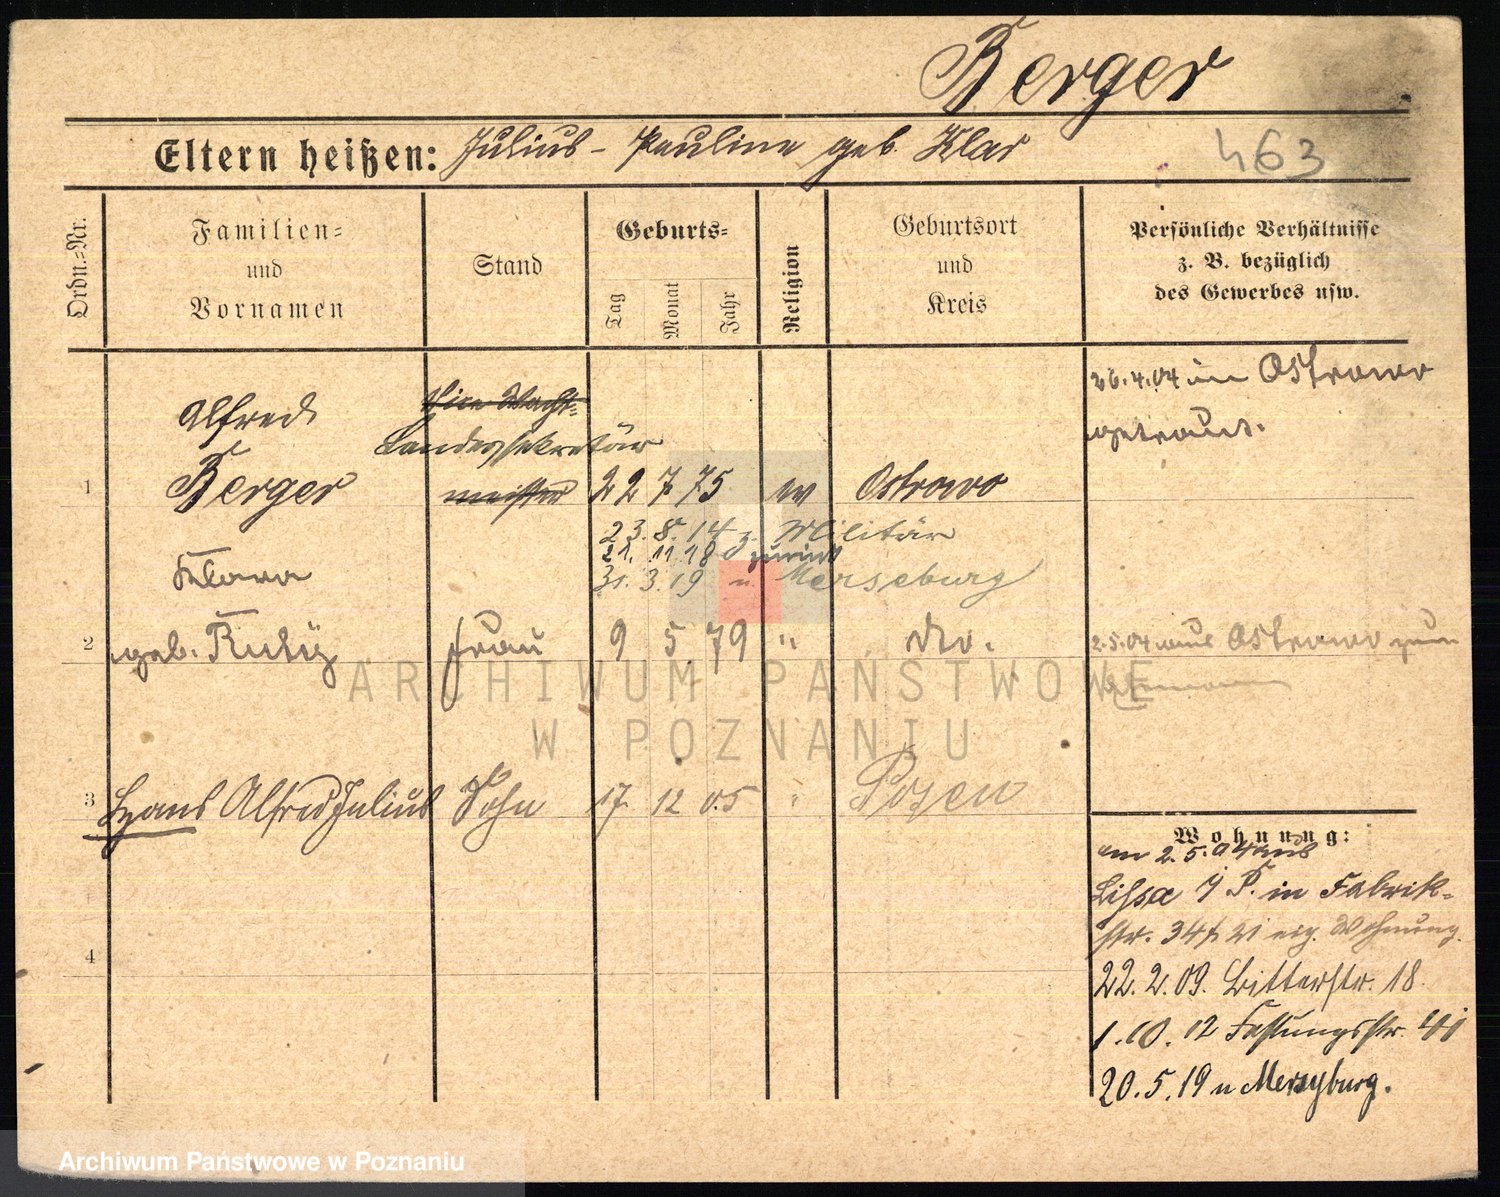 Berger
Eltern heißen: Julius - Pauline geb. Klar
463
Ordn.-Nr.
Familien-
und
Vornamen
Stand
Geburts-
Tag
Monat
Jahr
Religion
Geburtsort
und
Kreis
Persönliche Verhältnisse
z. B. bezüglich
des Gewerbes usw.
26.4.04 in Ostrowo
getraut.
Alfred
Vice Wacht-
Landessekretär
1 Berger meister 22 7 75 Ostrowo
23. 8. 14 z. Militär
21. 11. 18 zurück
31. 3. 19 n. Merseburg
Klara
2 geb. Frau 9 5 79 " do. 2.5.04 aus Ostrowo zum
Ehemann
3 Hans Alfred Julius Sohn 17 12 05 " Posen
4
Wohnung:
am 2.5.04 aus
Lissa i/P. in Fabrik-
str. 34 eig. Wohnung.
22.2.09. Bitterstr. 18.
1.10.12 Festungsstr.
20.5.19 n Merseburg.
ARCHIWUM PAŃSTWOWE
W POZNANIU
Archiwum Państwowe w Poznaniu